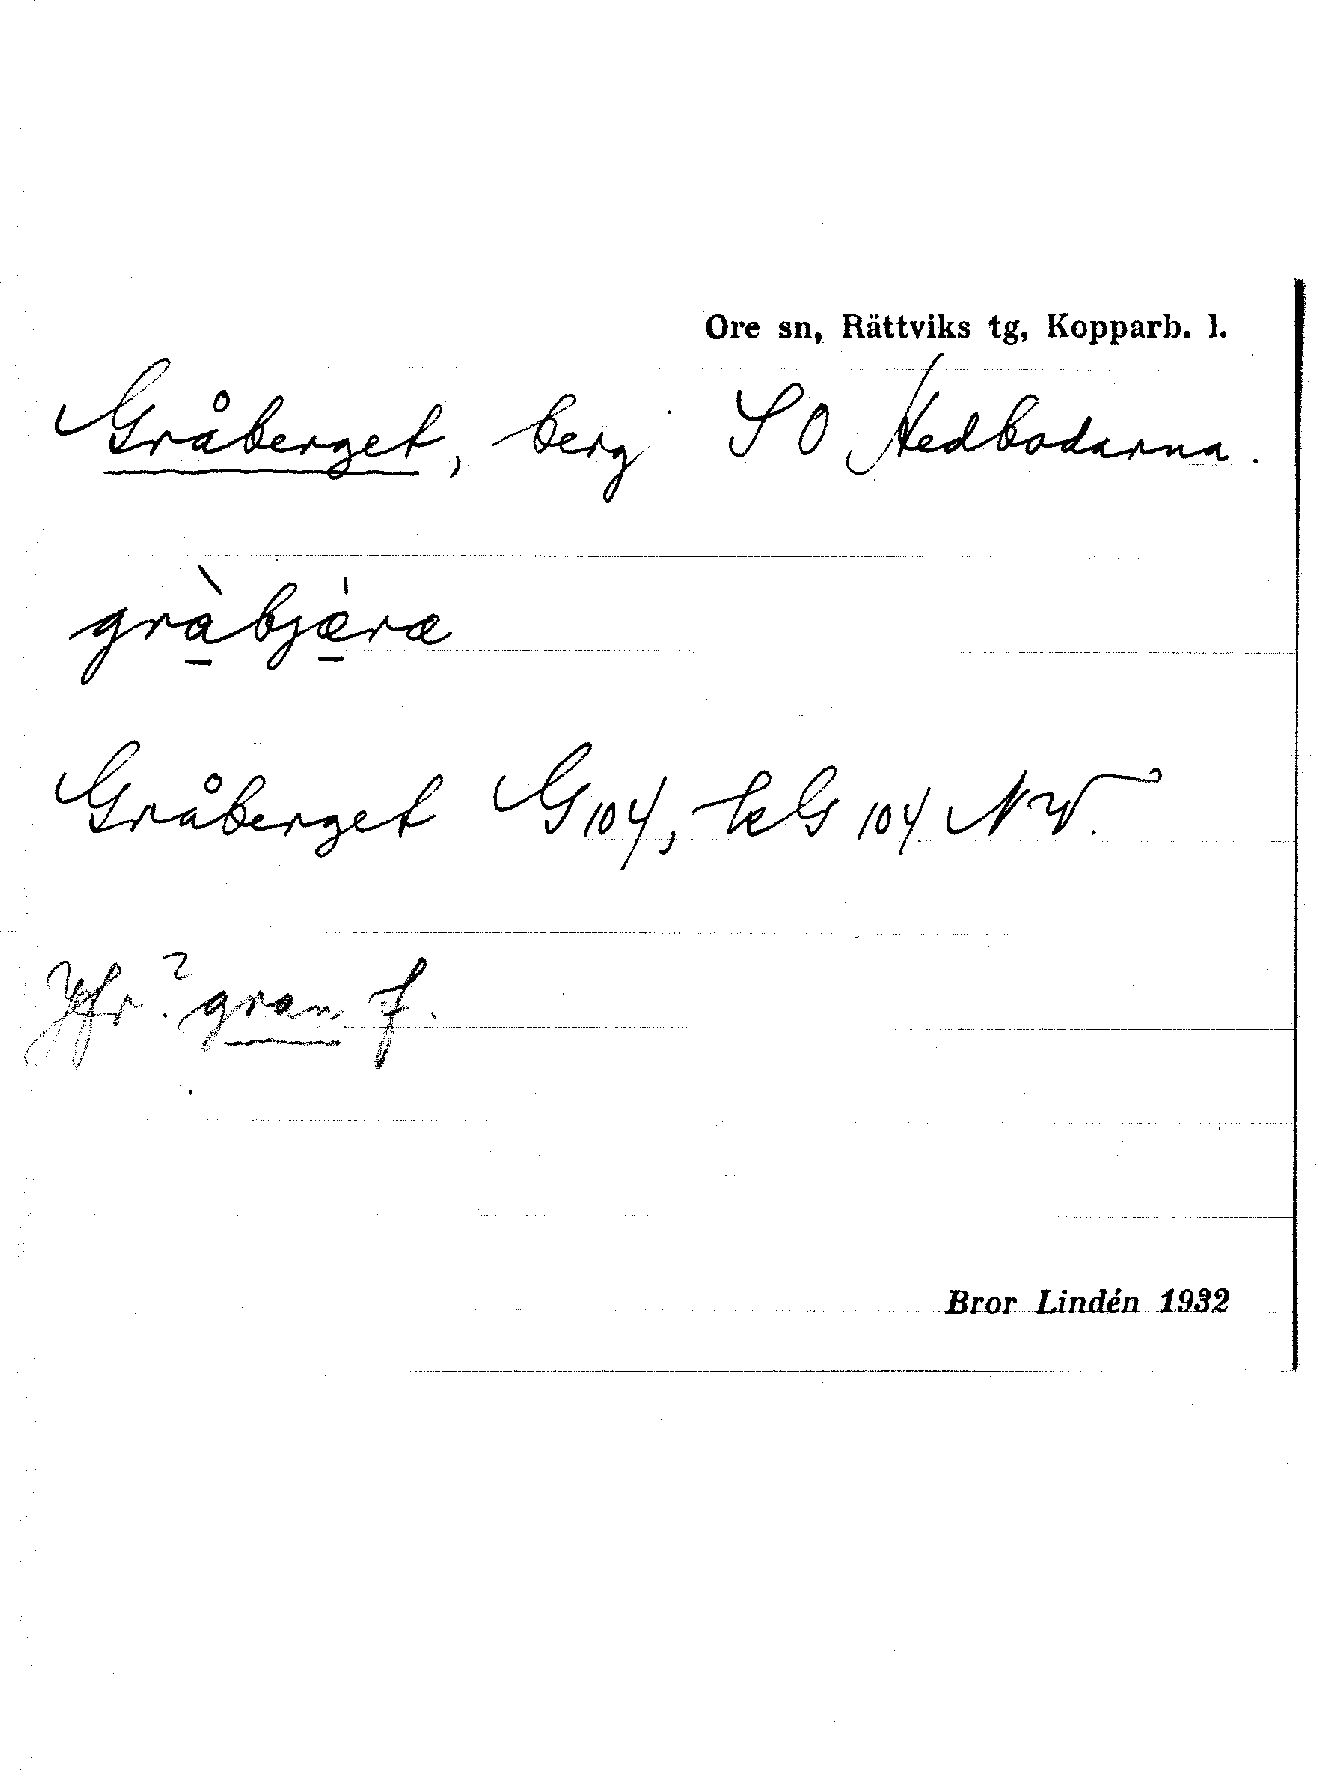 Ore sn, Rättviks tg, Kopparb. l.
Gråberget, berg SO Hedbodarna.
grà̱bjæ̱̀ræ
Gråberget G104, kG 104 NV.
Jfr? gran f.
Bror Lindén 1932